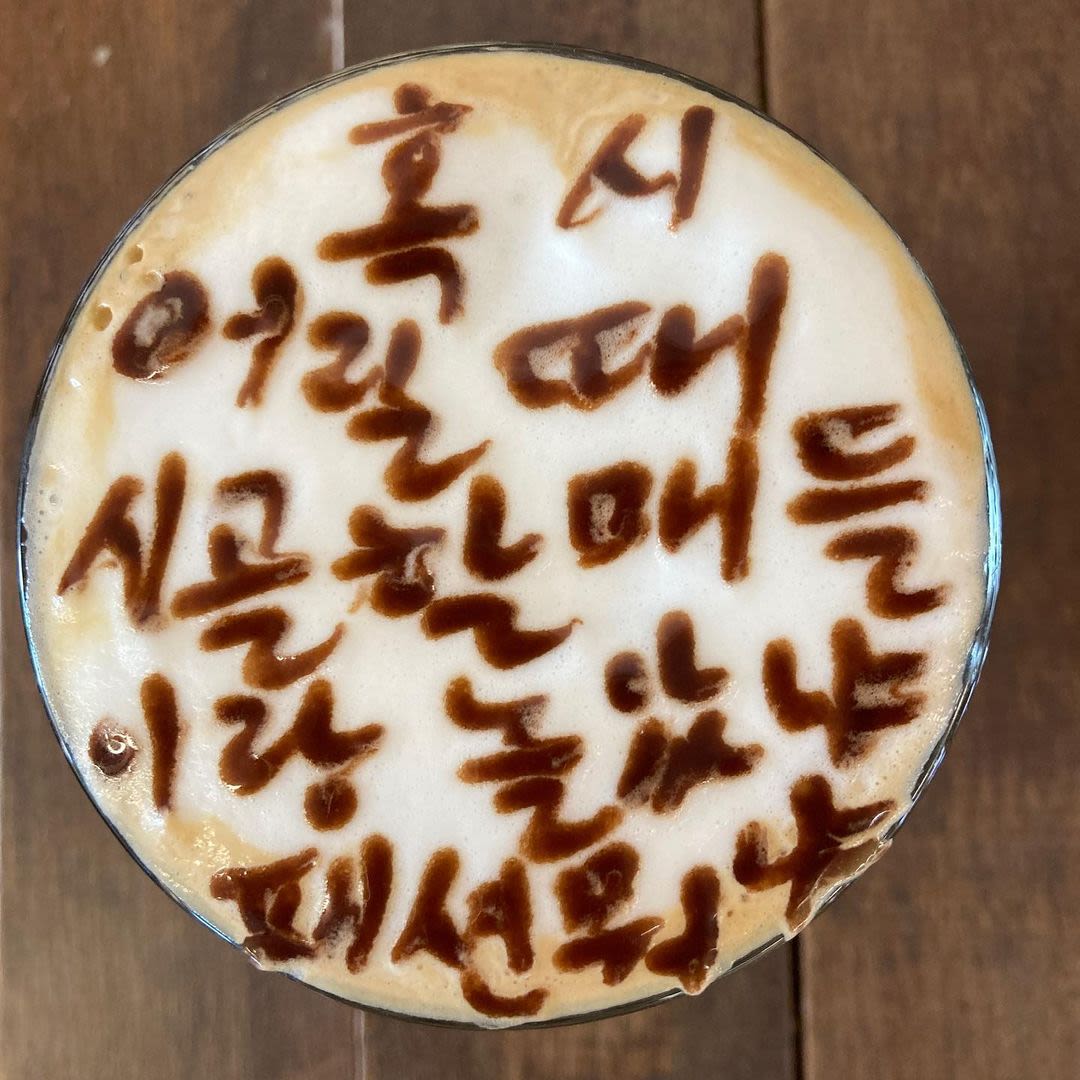 혹시
어릴 때
시골 할매들
이랑 놀았냐
패션 뭐냐